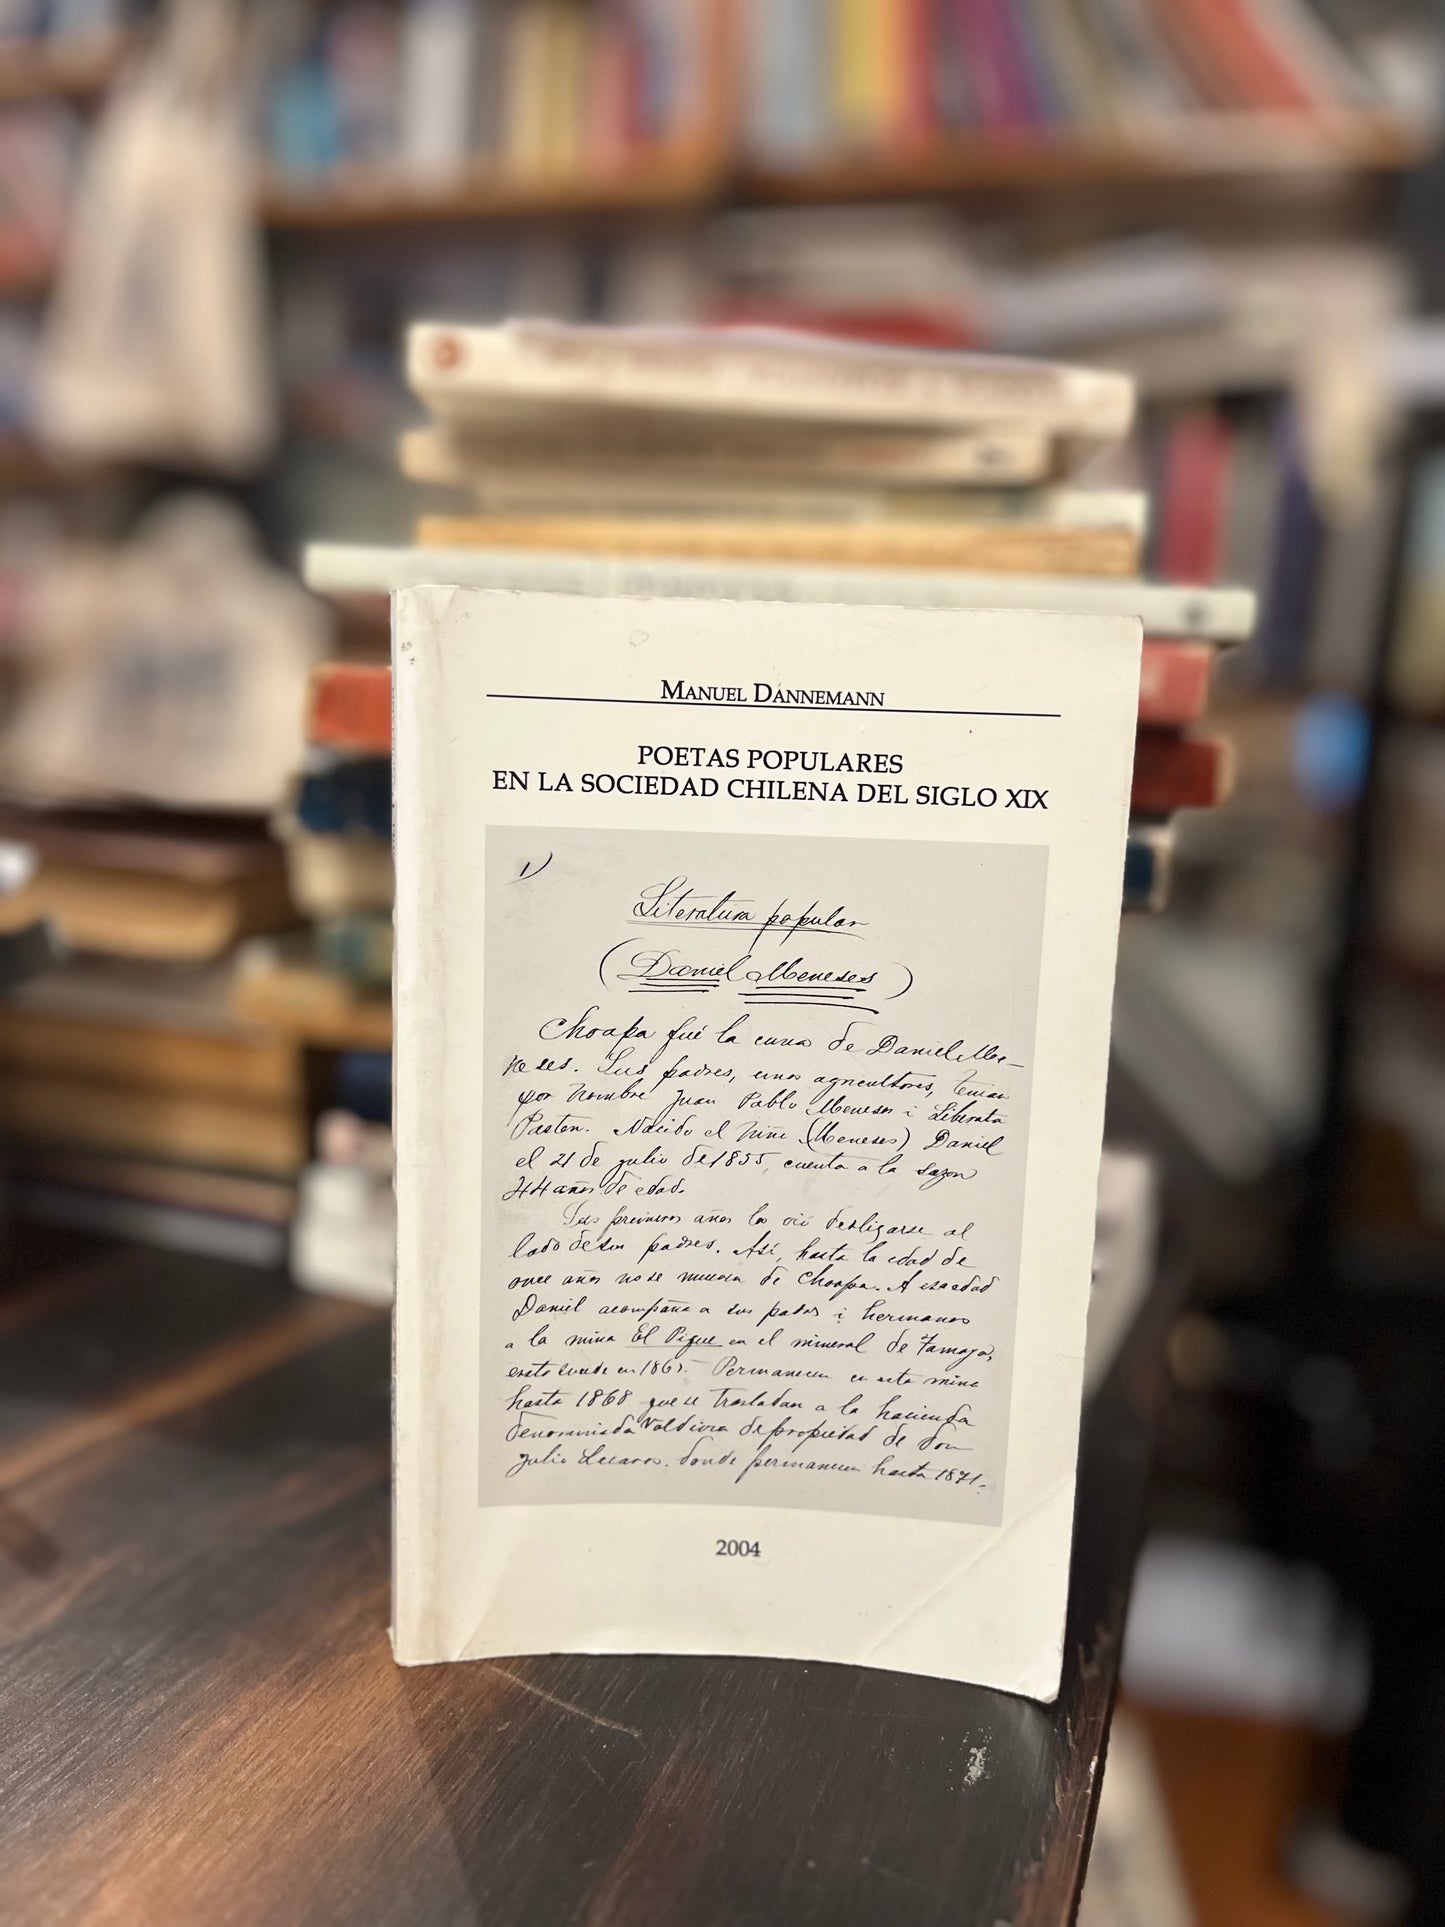 MANUEL DANNEMANN
POETAS POPULARES
EN LA SOCIEDAD CHILENA DEL SIGLO XIX
1)
Literatura popular
(Daniel Meneses)
Choapa fué la cuna de Daniel Me-
neses. Sus padres, unos agricultores, tenian
por nombre Juan Pablo Meneses i Liberata
Pasten. Nacido el niño (Meneses) Daniel
el 21 de julio de 1855, cuenta a la sazon
44 años de edad.
Sus primeros años los vió deslizarse al
lado de sus padres. Así, hasta la edad de
once años no se mueve de Choapa. A esa edad
Daniel acompaña a sus padres i hermanos
a la mina El Pique en el mineral de Tamaya,
esto sucede en Permanecen en esta mina
hasta 1868 que se trasladan a la hacienda
denominada Valdivia de propiedad de don
julio Lecaros. donde permanecen hasta 1871.
2004